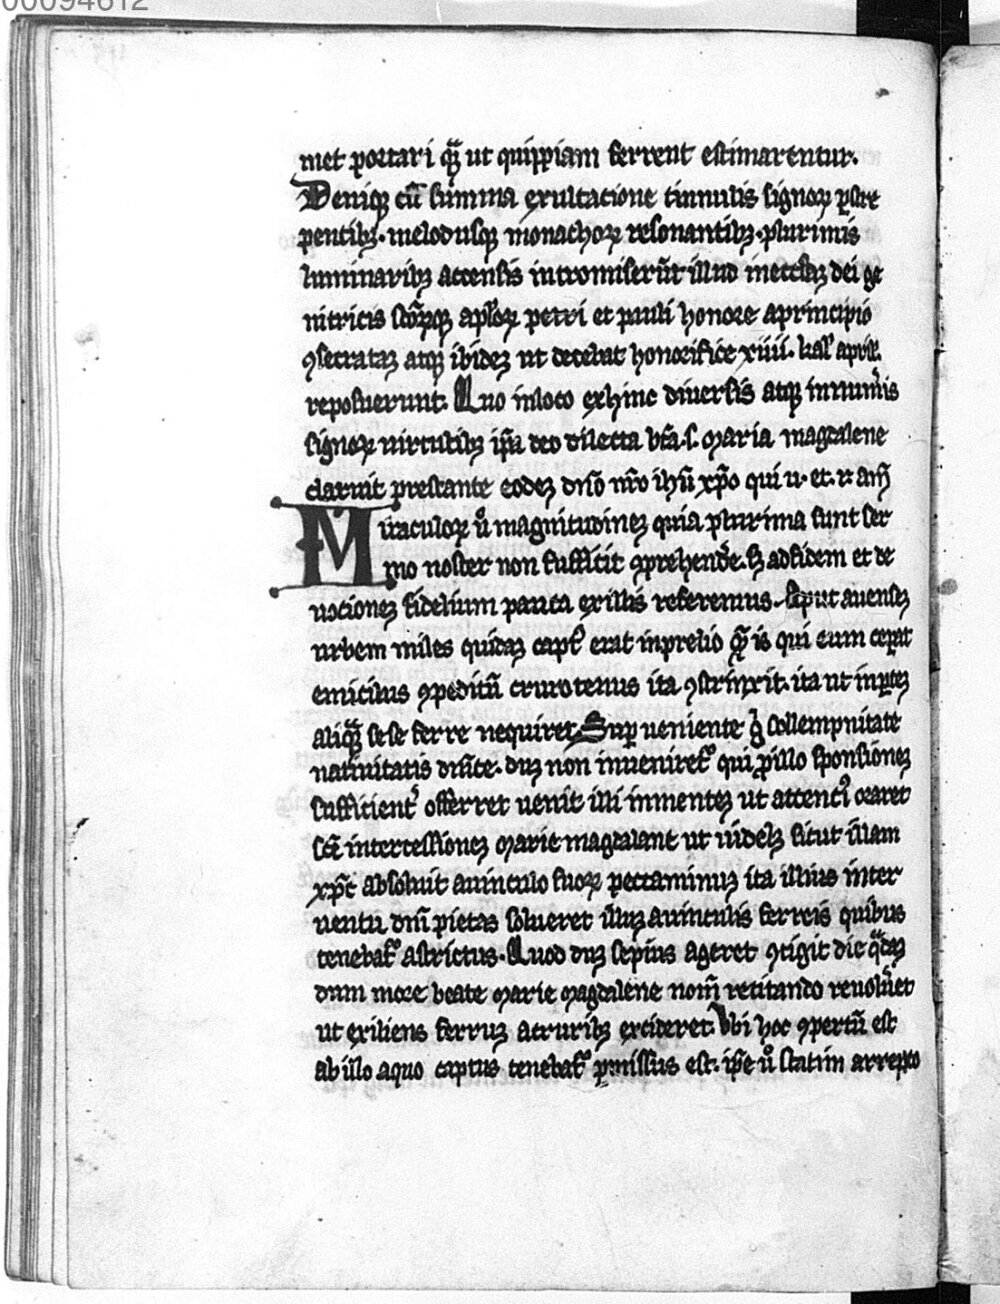 00094612
met portari q̄ ut quippiam ferrent estimarentur.
Deniqꝫ cū summa exultacione tinnulis signoꝝ ꝑstre
pentibꝫ. melodusqꝫ monachoꝝ resonantibꝫ. plurimis
luminaribꝫ accensis intromiserūt illud in dei ge
nitricis apl'oꝝ petri et pauli honore aprincipio
ꝯsecrataꝫ atqꝫ ibideꝫ ut decebat honorifice xiiii. kal' april'.
reposuerunt. Quo inloco exhinc diuersis atqꝫ innum̄is
signoꝝ uirtutibꝫ ip̄a deo dilecta bt̄a. s. maria magdalene
claruit prestante eodeꝫ dn̄o nr̄o ihū xp̄o qui u. et. r. am̄
Miraculoꝝ ů magnitudineꝫ quia plurima sunt ser
mo noster non sufficit ꝯprehendēe. sꝫ adfidem et de
uocioneꝫ fidelium pauca exillis referemus. aput auenseꝫ
urbem miles quidaꝫ capt᷒ erat inprelio q̄ is qui eum ceꝑat
emicibus ꝯpeditū crurotenus ita ꝯstrinxit. ita ut inꝑteꝫ
aliq̄ sese ferre nequiret. Suꝑ ueniente g̊ sollempnitate
natiuitatis dn̄ice. duꝫ non inueniret᷒ qui ꝓillo sponsioneꝫ
sufficient᷒ offerret uenit illi inmenteꝫ ut attenci᷒ oraret
sc̄e intercessioneꝫ marie magdalane ut uidelꝫ sicut illam
xp̄c absoluit auinculo suoꝝ peccaminuꝫ ita illius inter
uentu dn̄i pietas solueret illuꝫ auinculis ferreis quibus
tenebat᷒ astrictus. Quod duꝫ sepius ageret ꝯtigit die q̄daꝫ
dum more beate marie magdalene nom̄ recitando reuolu̅et
ut exiliens ferruꝫ acruribꝫ excideret. Vbi hoc ꝯpertū est
ab illo aquo captus tenebat᷒ ꝑmissus est. ip̄e ů statim arrepto